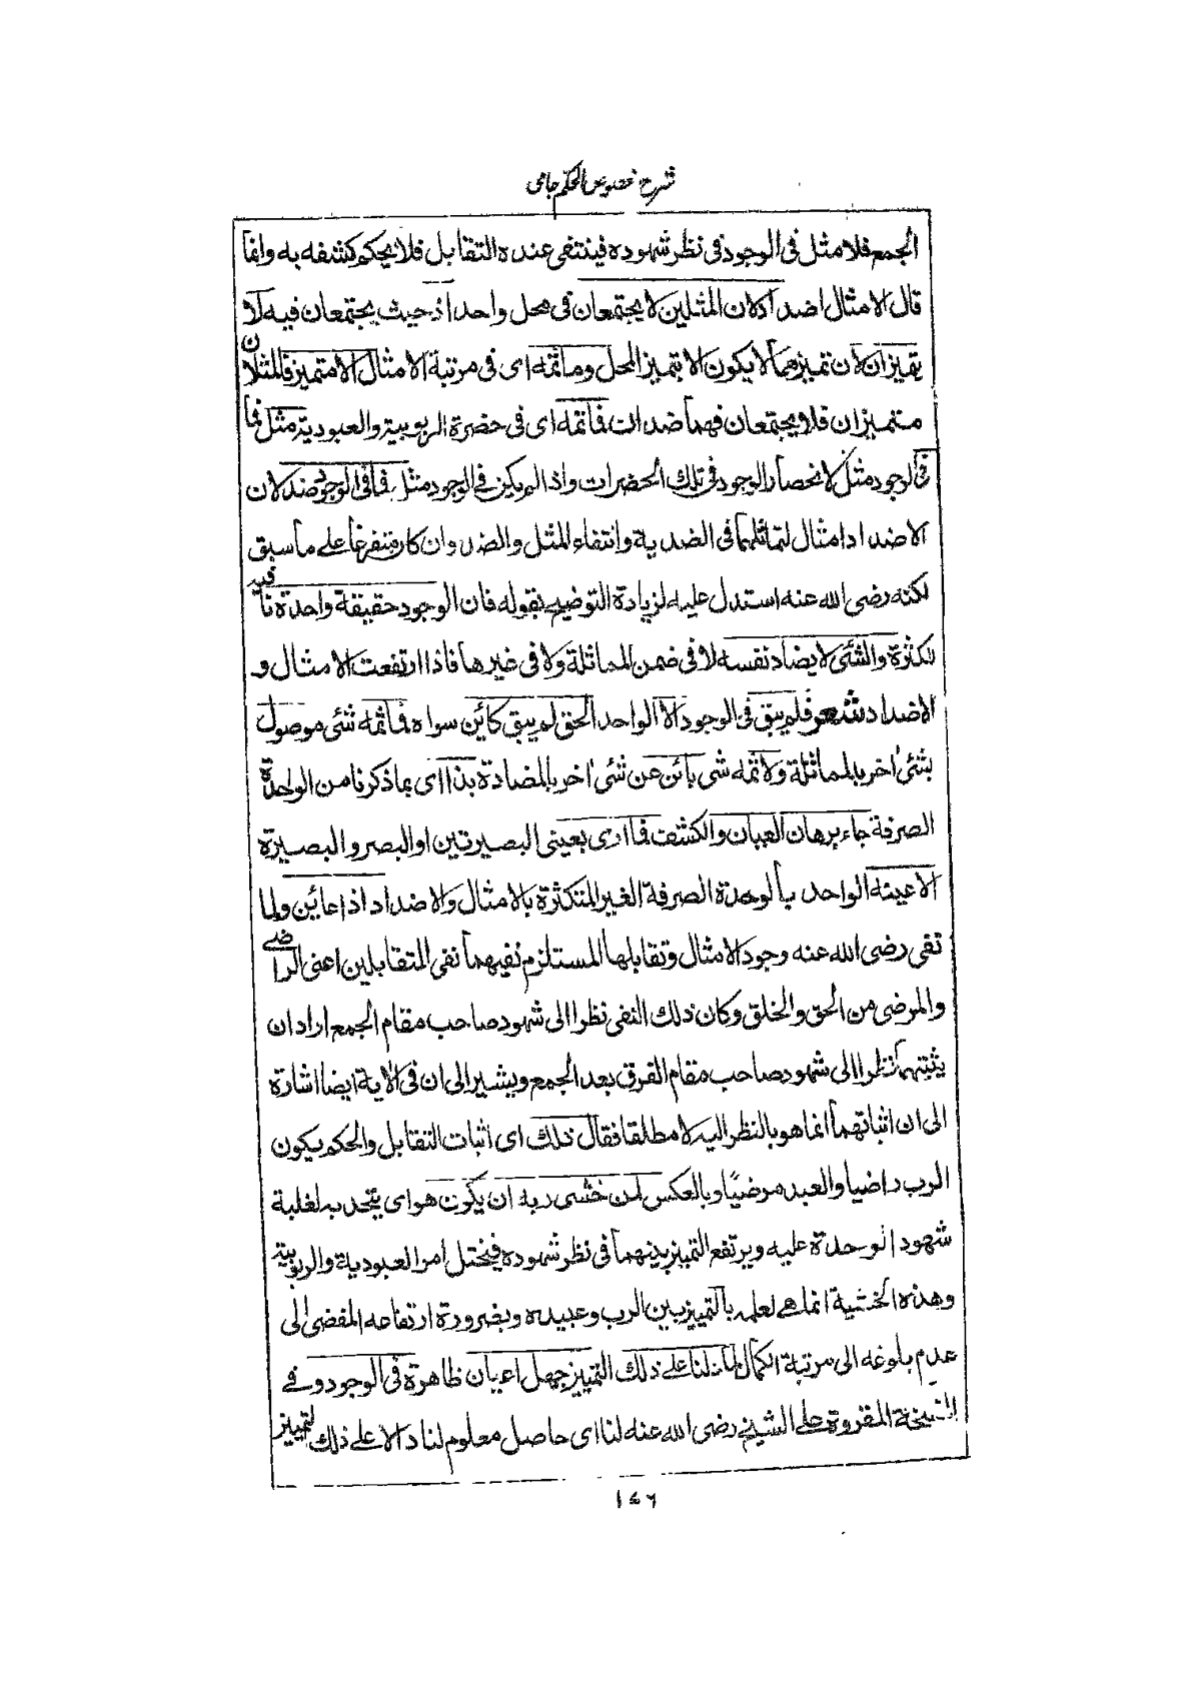 شرح فصوص الحكم جامى
الجمع فلا مثل فى الوجود فى نظر شهوده فينتفى عنده التقابل فلا يحكم كشفه به وانما
قال الامثال اضداد لان المثلين لا يجتمعان فى محل واحد اذ حيث يجتمعان فيه لا
يتميزان لان تميزهما لا يكون الا بتميز المحل وما ثمه اى فى مرتبة الامثال الا متميز فالمثلان
متميزان فلا يجتمعان فهما ضدان فما ثمه اى فى حضرة الربوبية والعبودية مثل فما
فى الوجود مثل لانحصار الوجود فى تلك الحضرات واذا لم يكن فى الوجود مثل فما فى الوجود ضد لان
الاضداد امثال لتماثلهما فى الضدية وانتفاء المثل والضد وان كان متفرعا على ما سبق
لكنه رضى الله عنه استدل عليه لزيادة التوضيح بقوله فان الوجود حقيقة واحدة نافية
للكثرة والشئ لا يضاد نفسه لا فى ضمن المماثلة ولا فى غيرها فاذا ارتفعت الامثال و
الاضداد شعر فلم يبق فى الوجود الا الواحد الحق لم يبق كائن سواه فما ثمه شئ موصول
بشئ اخر بالمماثلة ولا ثمه شى بائن عن شئ اخر بالمضادة بذا اى بما ذكرنا من الواحدة
الصرفة جاء برهان العيان والكشف فما ارى بعينى البصيرتين او البصر والبصيرة
الا عينه الواحد بالوحدة الصرفة الغير المتكثرة بالامثال والاضداد اذ اعاين ولما
نفى رضى الله عنه وجود الامثال وتقابلها المستلزم نفيهما نفى المتقابلين اعنى الراضى
والمرضى من الحق والخلق وكان ذلك النفى نظرا الى شهود صاحب مقام الجمع اراد ان
يثبتهما نظرا الى شهود صاحب مقام الفرق بعد الجمع ويشير الى ان فى الاية ايضا اشارة
الى ان اثباتهما انما هو بالنظر اليه لا مطلقا فقال ذلك اى اثبات التقابل والحكم بكون
الرب راضيا والعبد مرضيا وبالعكس لمن خشى ربه ان يكون هو اى يتحد به لغلبة
شهود الوحدة عليه ويرتفع التميز بينهما فى نظر شهوده فيختل امر العبودية والربوبية
وهذه الخشية انما هى لعلمه بالتمييز بين الرب وعبيده وبضرورة ارتفاعه المفضى الى
عدم بلوغه الى مرتبة الكمال لما دلنا على ذلك التمييز جهل اعيان ظاهرة فى الوجود و فى
النسخة المقروة على الشيخ رضى الله عنه لنا اى حاصل معلوم لنا دالا على ذلك التمييز
١٤٦